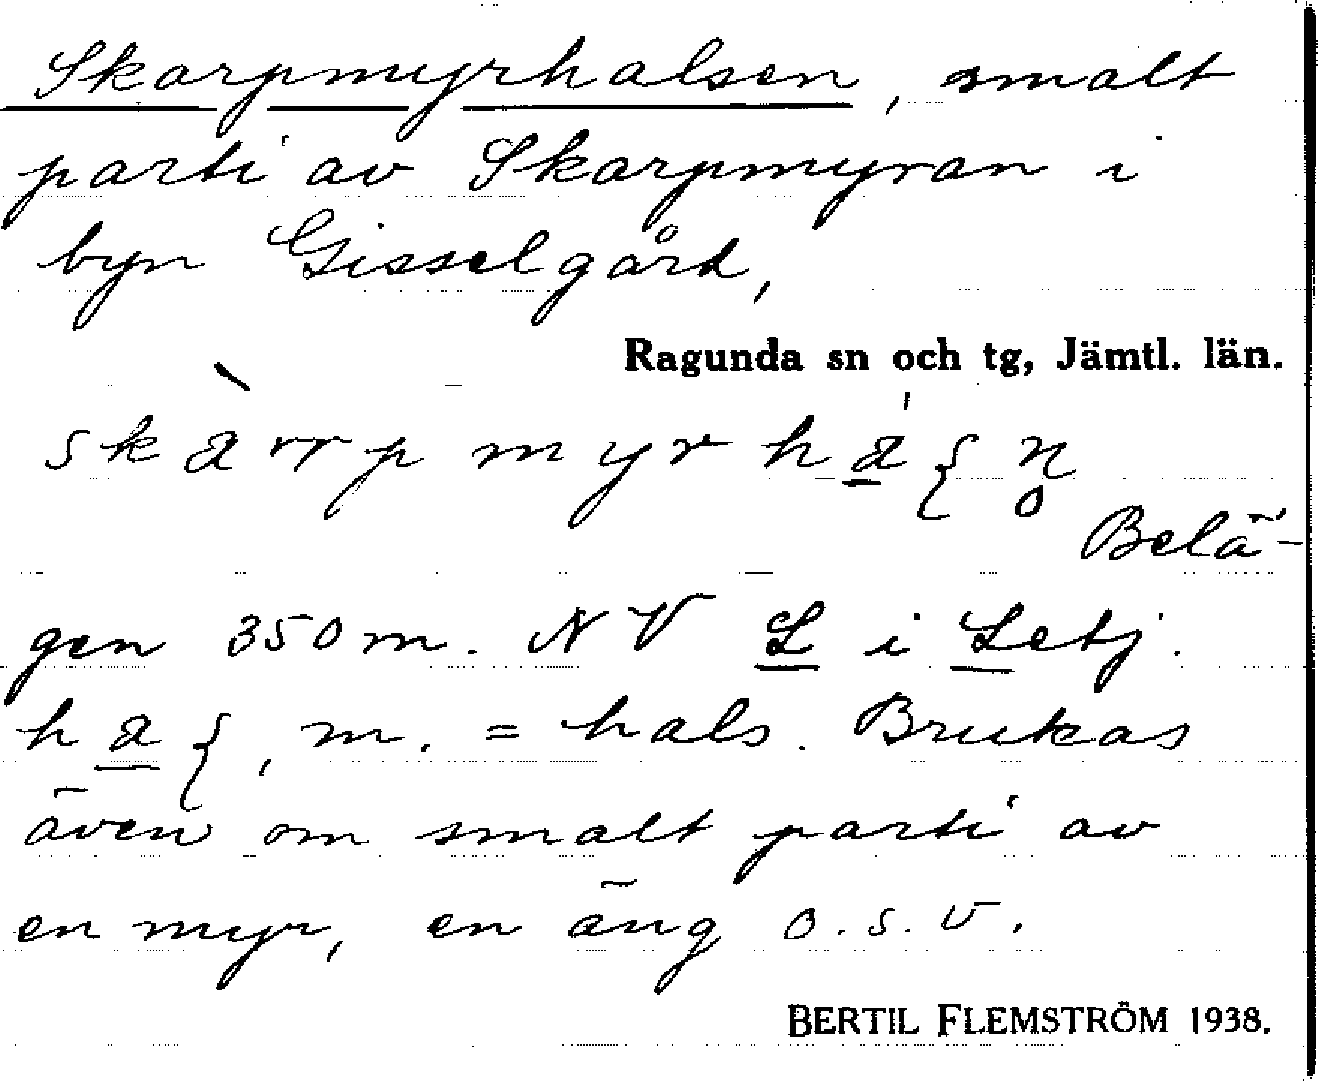 Skarpmyrhalsen, smalt
parti av Skarpmyran i
byn Gisselgård,
Ragunda sn och tg, Jämtl. län.
Belä-
gen 350 m. NV L i Letj.
m. = hals. Brukas
även om smalt parti av
en myr, en äng o.s.v.
BERTIL FLEMSTRÖM 1938.